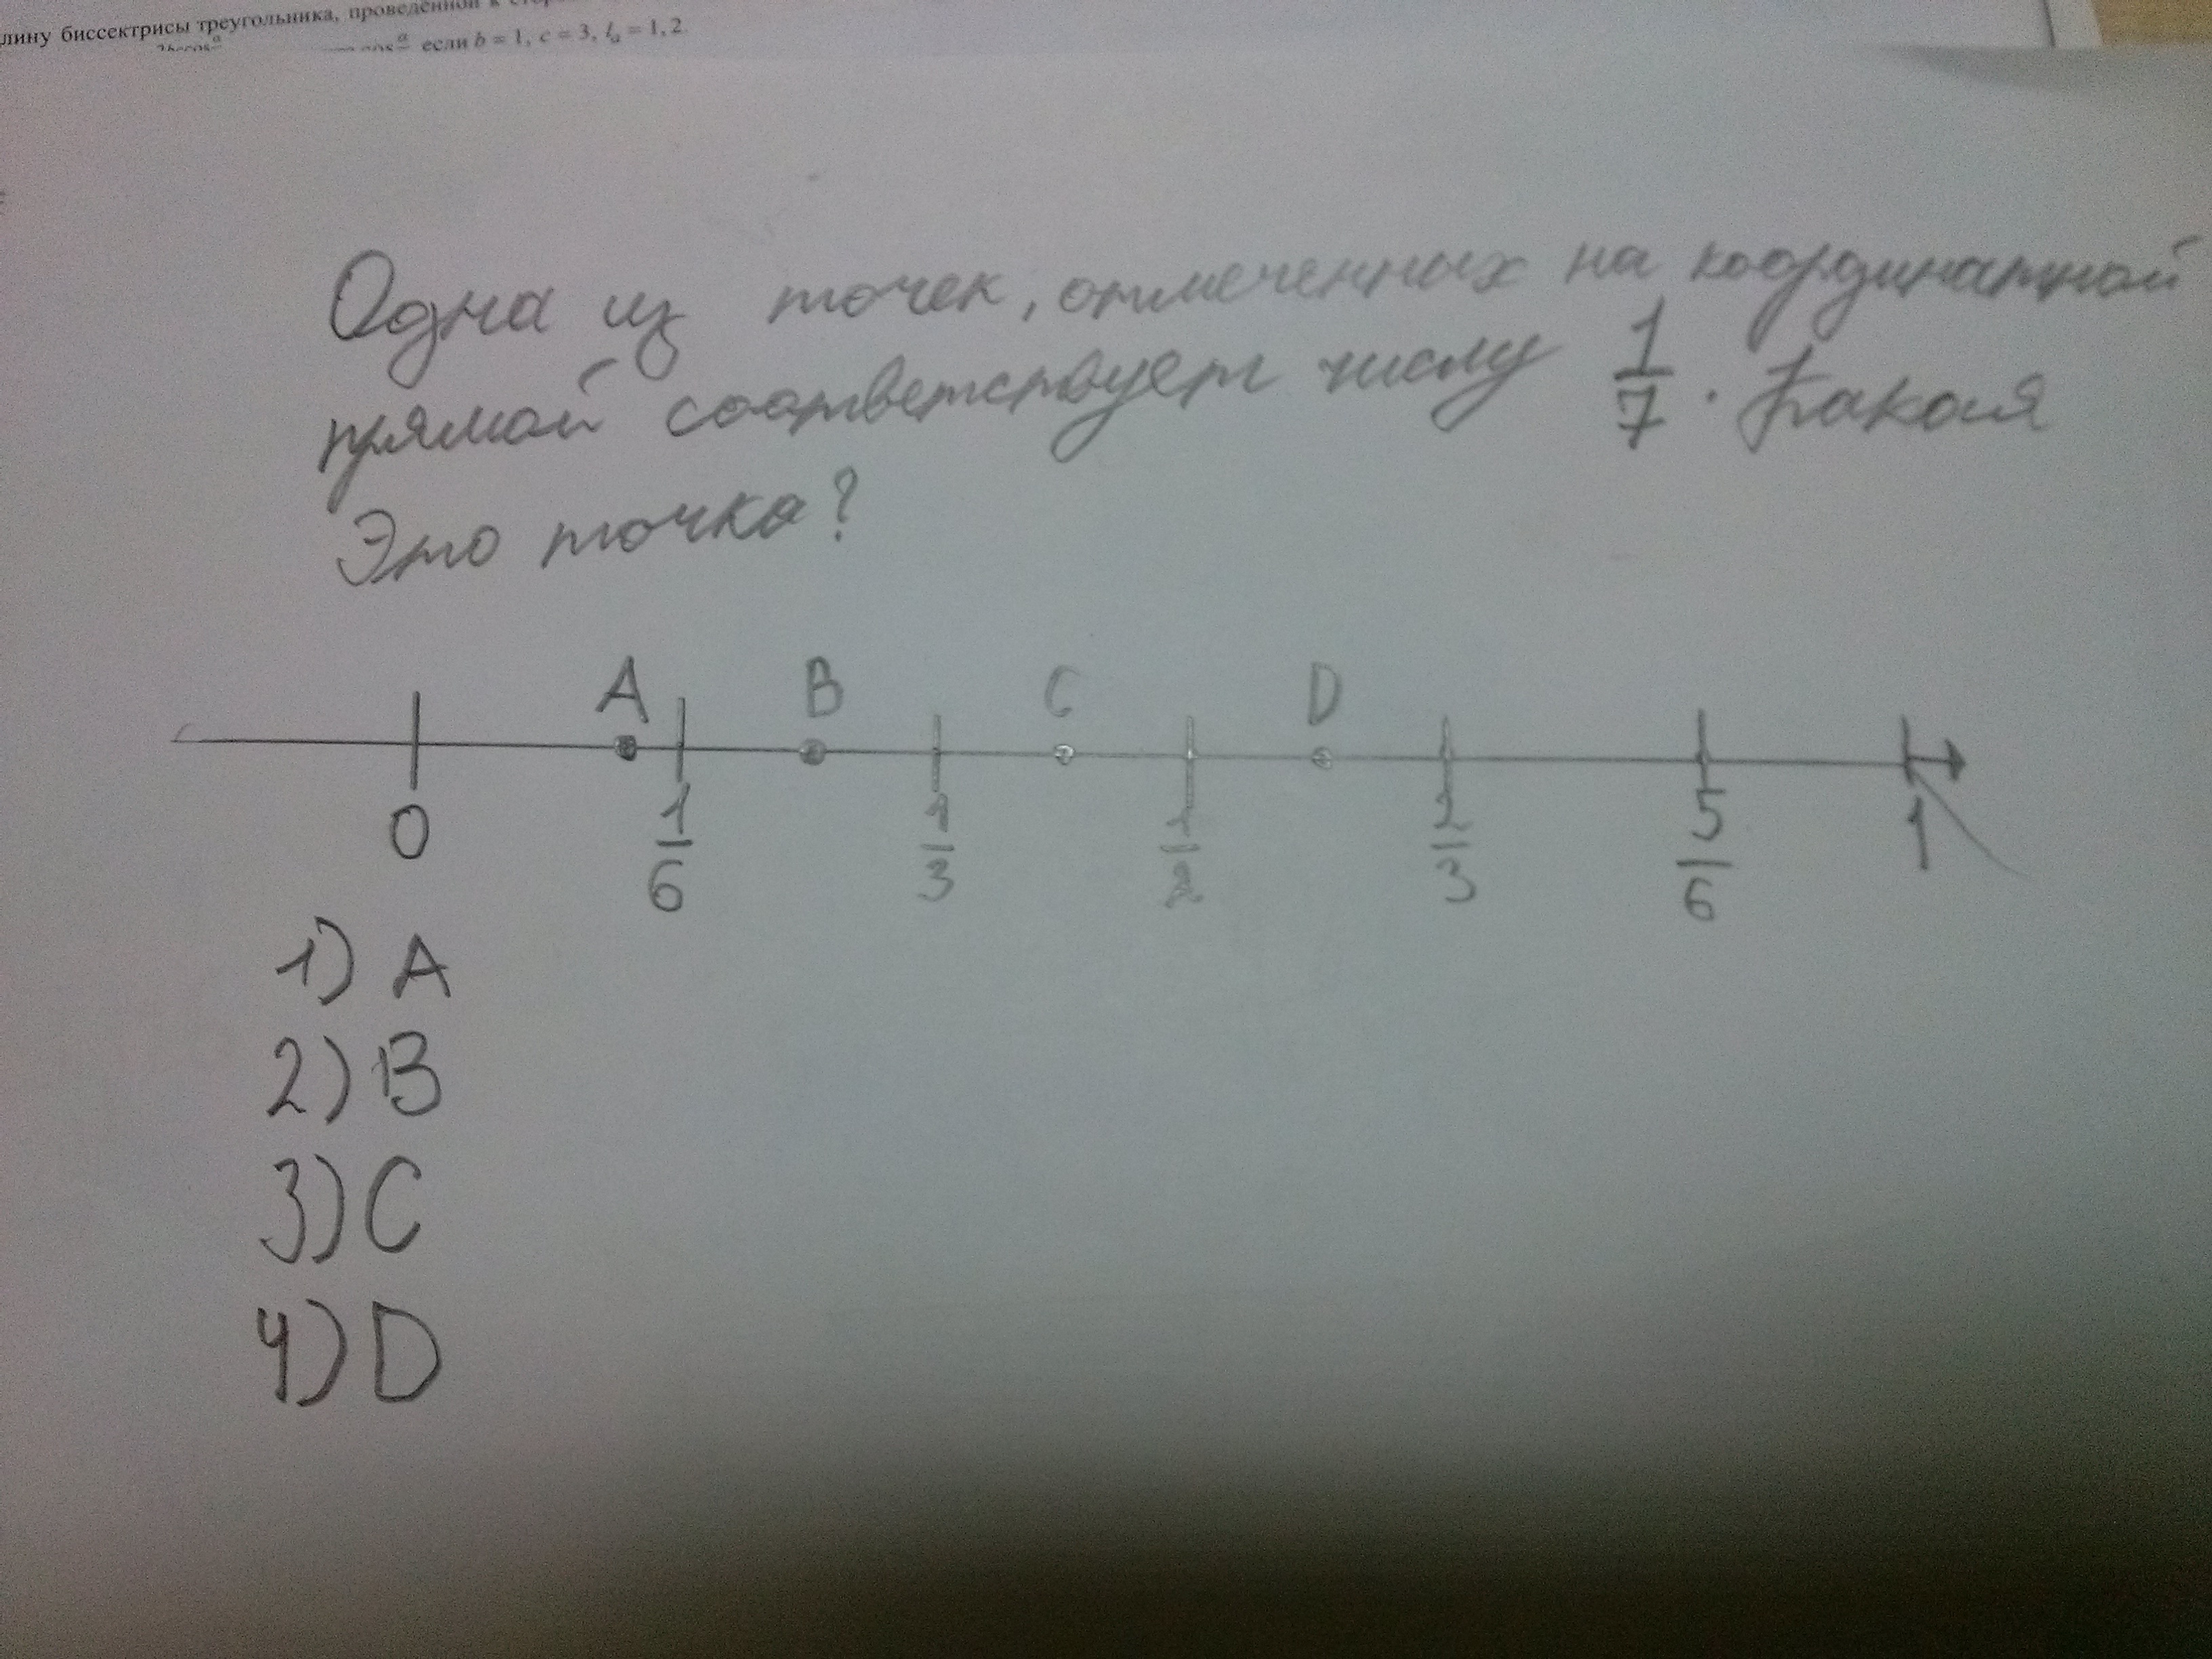 лину биссектрисы треугольника, проведённой к
если b = 1, c = 3, lₐ = 1,2.
Одна из точек, отмеченных на координатной
прямой соответствует числу 1/7. Какая
Это точка?
A B C D
0 1/6 1/3 1/2 2/3 5/6 1
1) A
2) B
3) C
4) D